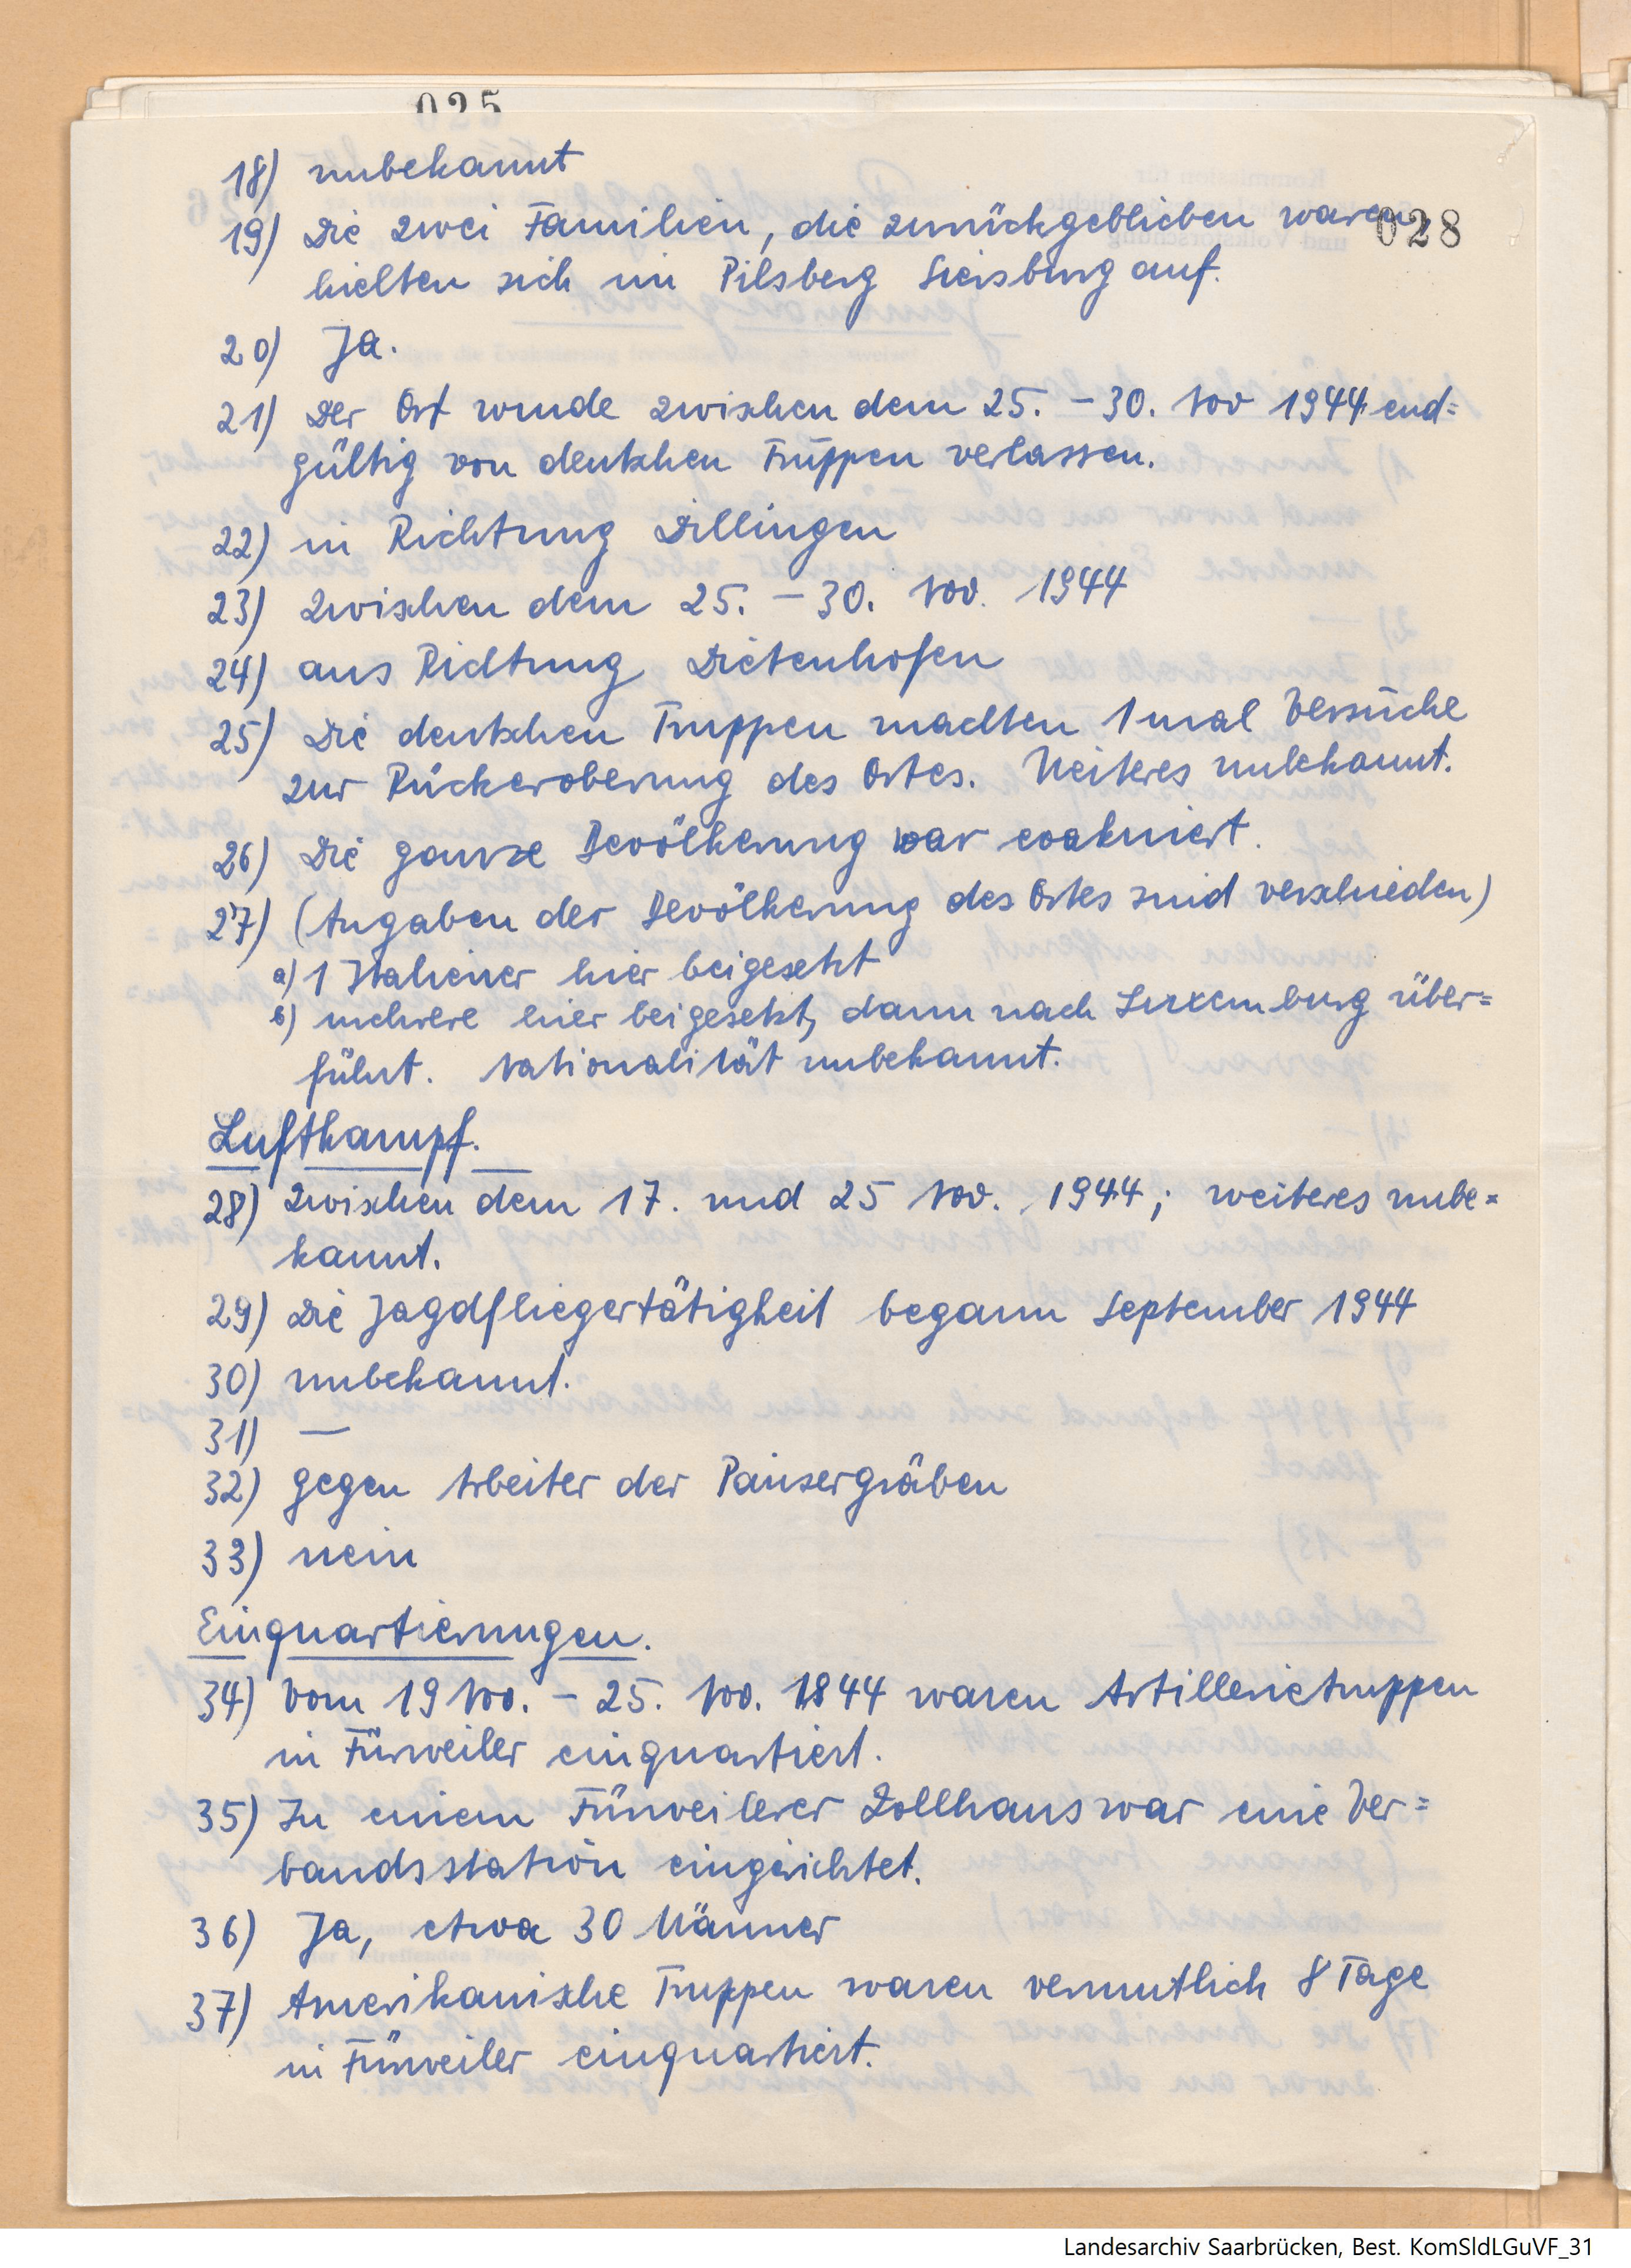 025
18) unbekannt
028
19) Die zwei Familien, die zurückgeblieben waren,
hielten sich im Pilsberg Siersburg auf.
20) Ja.
21) Der Ort wurde zwischen dem 25. - 30. Nov 1944 end=
gültig von deutschen Truppen verlassen.
22) in Richtung Dillingen
23) zwischen dem 25. - 30. Nov. 1944
24) aus Richtung Dietenhofen
25) Die deutschen Truppen machten 1 mal Versuche
zur Rückeroberung des Ortes. Weiteres unbekannt.
26) Die ganze Bevölkerung war evakuiert.
27) (Angaben der Bevölkerung des Ortes sind verschieden)
a) 1 Italiener hier beigesetzt
b) mehrere hier beigesetzt, dann nach Luxemburg über=
führt. Nationalität unbekannt.
Luftkampf.
28) zwischen dem 17. und 25 Nov. 1944; weiteres unbe=
kannt.
29) Die Jagdfliegertätigkeit begann September 1944
30) unbekannt.
31) —
32) gegen Arbeiter der Panzergräben
33) nein
Einquartierungen.
34) Vom 19 Nov. - 25. Nov. 1844 waren Artillerietruppen
in Fürweiler einquartiert.
35) In einem Fürweilerer Zollhaus war eine Ver=
bandsstation eingerichtet.
36) Ja, etwa 30 Männer
37) Amerikanische Truppen waren vermutlich 8 Tage
in Fürweiler einquartiert.
Landesarchiv Saarbrücken, Best. KomSldLGuVF_31